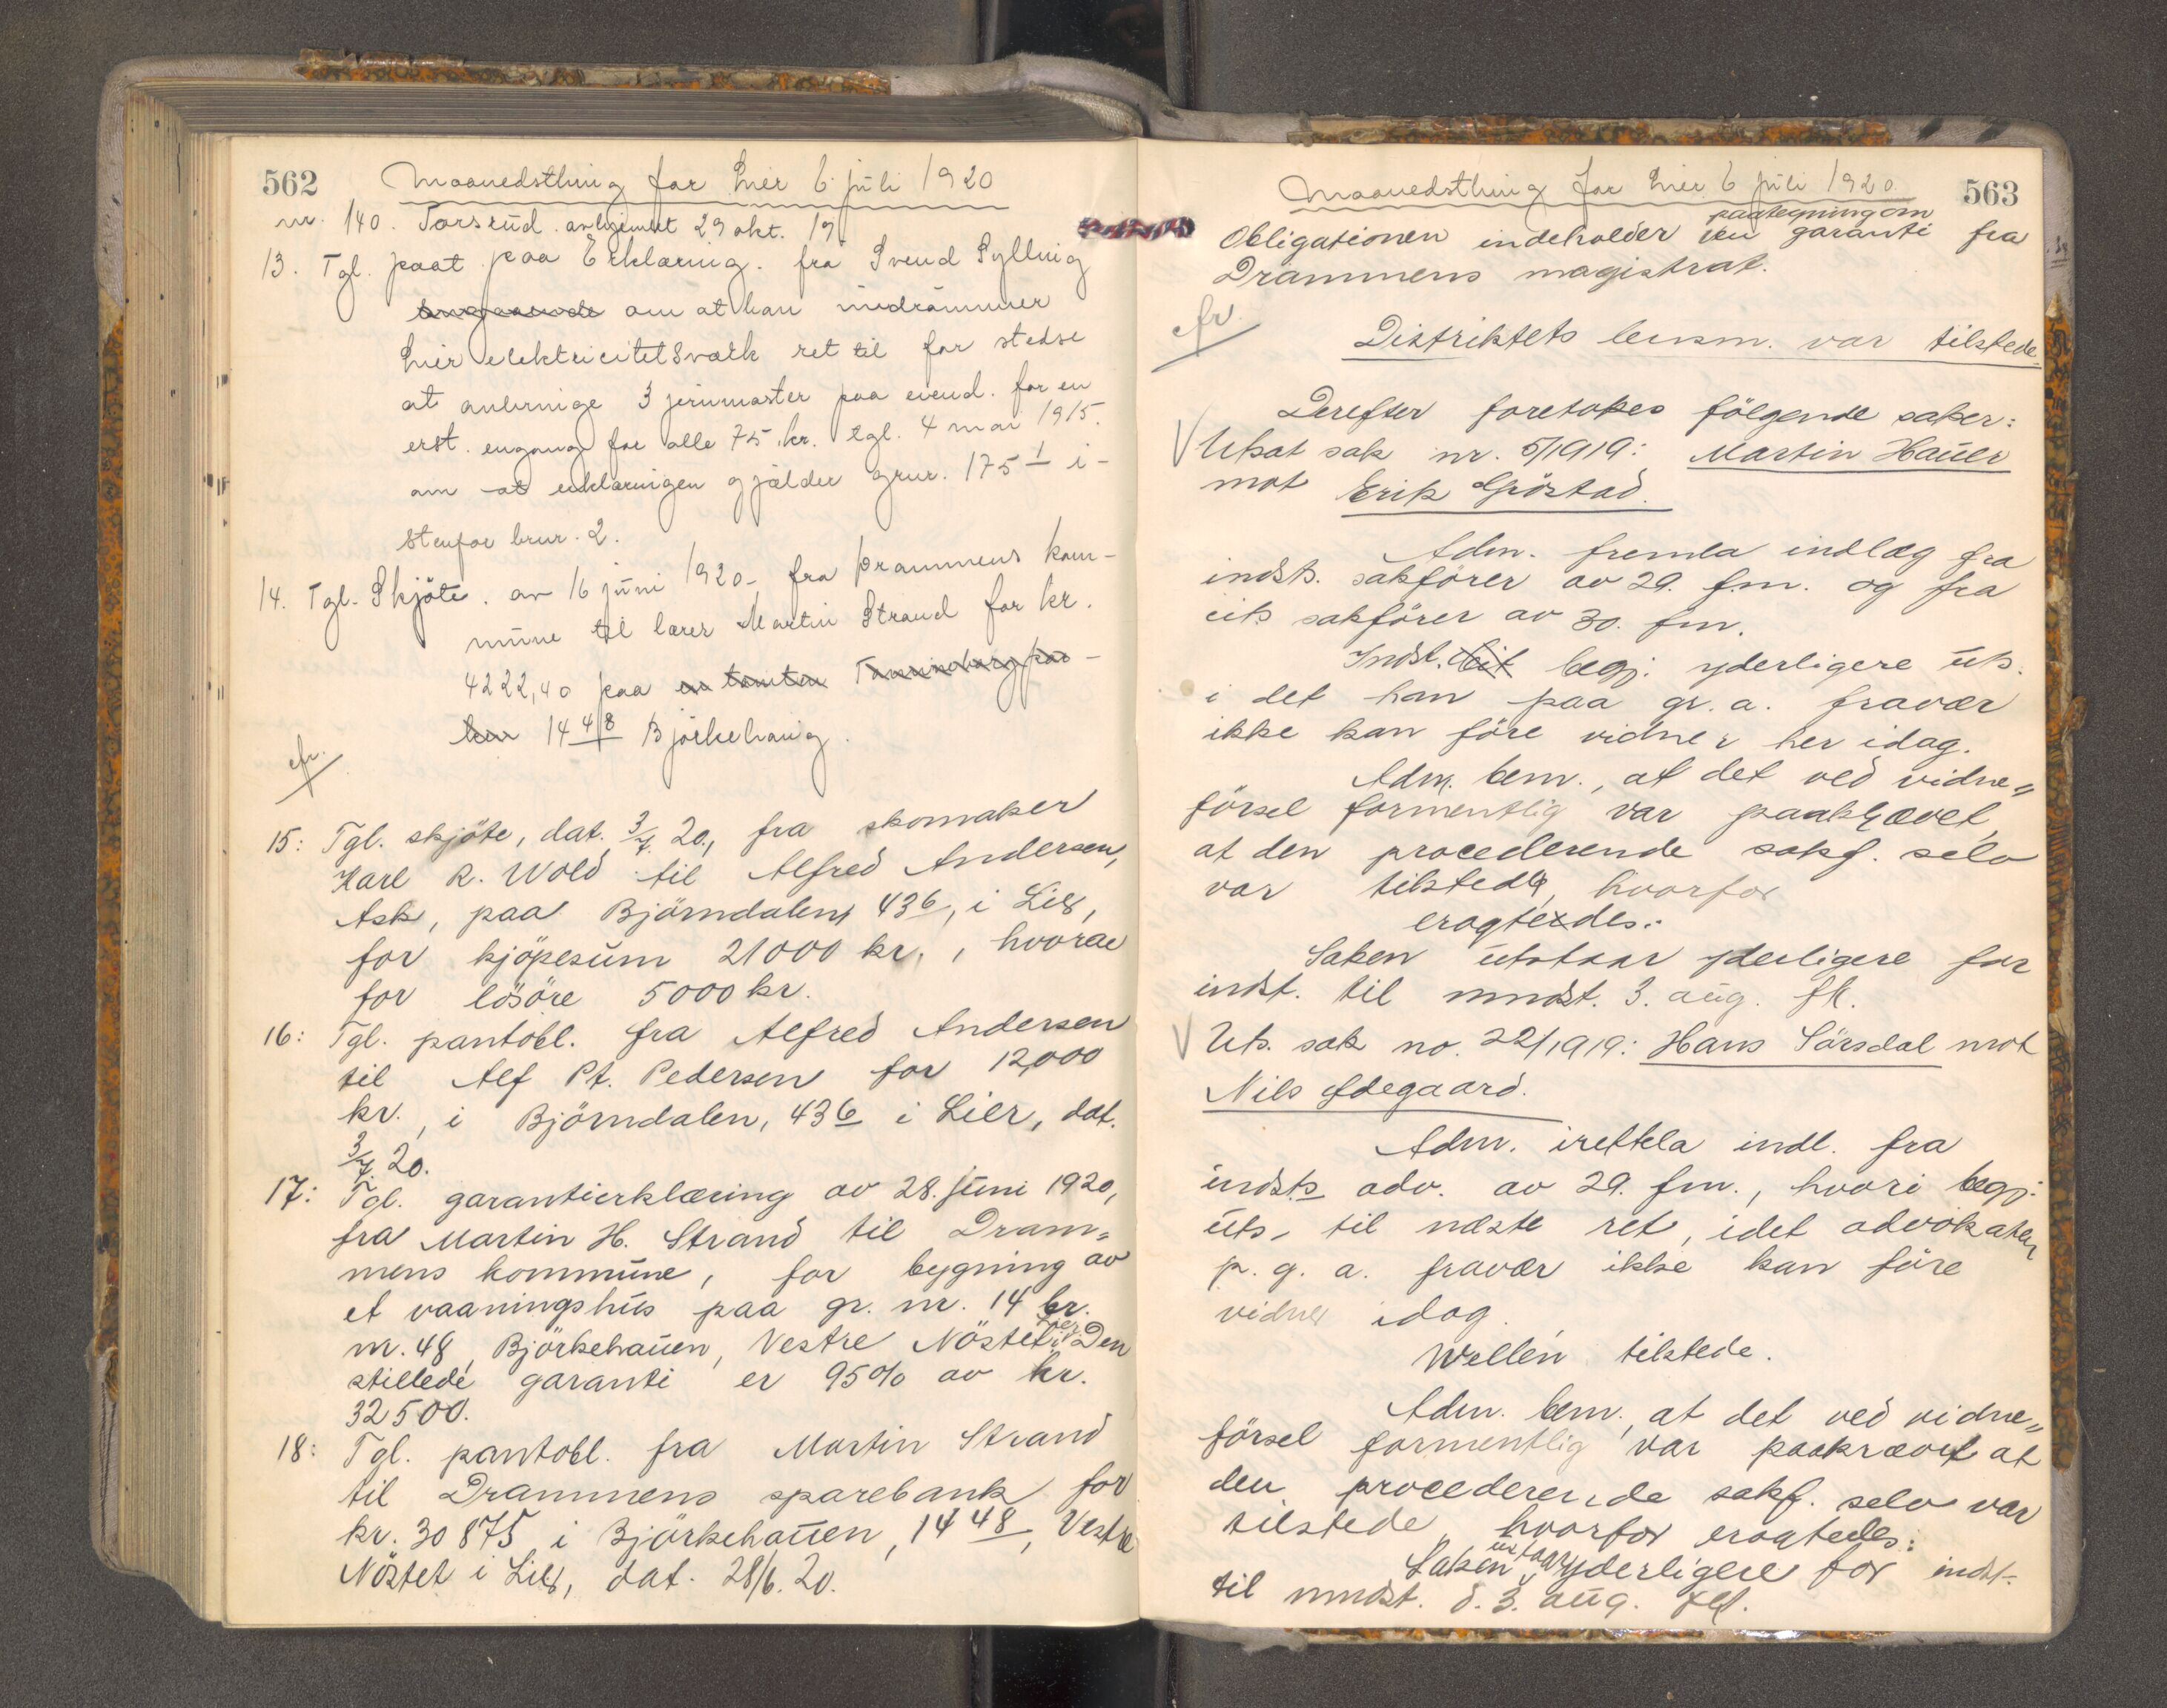 562 Maanedsthing for Lier 6 juli 1920
nr. 140. Torsrud. avhjemlet 29 okt. 19
13. Tgl. paat paa Erklæring. fra Svend Sylling
angaaende om at han indrømmer
Lier elektricitetsværk ret til for stedse
at anbringe 3 jernmaster paa eiend. for en
erst. engang for alle 75 kr. tgl. 4 mai 1915.
om at erklæringen gjælder grnr. 175 1 i-
stenfor brnr. 2.
14. Tgl. Skjöte. av 16 juni 1920 fra Drammens kom-
mune til lærer Martin Strand for kr.
4222,40 paa en tomten
14 48 Björkehaug.
cfr.
15: Tgl. skjöte, dat. 3/7. 20., fra skomaker
Karl R. Wold til Alfred Andersen,
Ask, paa Björndalen, 43 6, i Lier,
for kjöpesum 21000 kr., hvorav
for lösöre 5000 kr.
16: Tgl. pantobl. fra Alfred Andersen
til Alf Pt. Pedersen for 12,000
kr., i Björndalen, 43 6 i Lier, dat.
3/7. 20.
17: Tgl. garantierklæring av 28. juni 1920,
fra Martin H. Strand til Dram=
mens kommune, for bygning av
et vaaningshus paa gr. nr. 14 br.
nr. 48, Björkehauen, Vestre Nöstet i Lier. Den
stillede garanti er 95% av kr.
32500.
18: Tgl. pantobl. fra Martin Strand
til Drammens sparebank for
kr. 30875 i Björkehauen, 14 48, Vestre
Nöstet i Lier, dat. 28/6. 20.
Maanedsthing for Lier 6 juli 1920. 563
Obligationen indeholder en paategning om garanti fra
Drammens magistrat.
cfr.
Distriktets lensm. var tilstede.
Derefter foretokes fölgende saker:
Utsat sak nr. 5/1919: Martin Hauer
mot Erik Gröstad.
Adm. fremla indlæg fra
indst. sakförer av 29. f.m. og fra
cits sakförer av 30. f.m.
Indst. cit begj. yderligere uts.
i det han paa gr. a. fravær
ikke kan före vidner her idag.
Adm. bem., at det ved vidne=
försel formentlig var paakrævet,
at den procederende sakf. selv
var tilstede, hvorfor
eragtedes:
Saken utstaar yderligere for
indst. til mndst. 3. aug. fk.
Uts. sak no. 22/1919: Hans Sörsdal mot
Nils Ödegaard.
Adm. irettela indl. fra
indsts adv. av 29. f.m., hvori begj.
uts. til næste ret, idet advokaten
p. g. a. fravær ikke kan före
vidner idag.
Wellén tilstede.
Adm. bem., at det ved vidne=
försel formentlig var paakrævet at
den procederende sakf. selv var
tilstede, hvorfor eragtedes:
Saken utstaar yderligere for indst.
til mndst. d. 3. aug. fk.